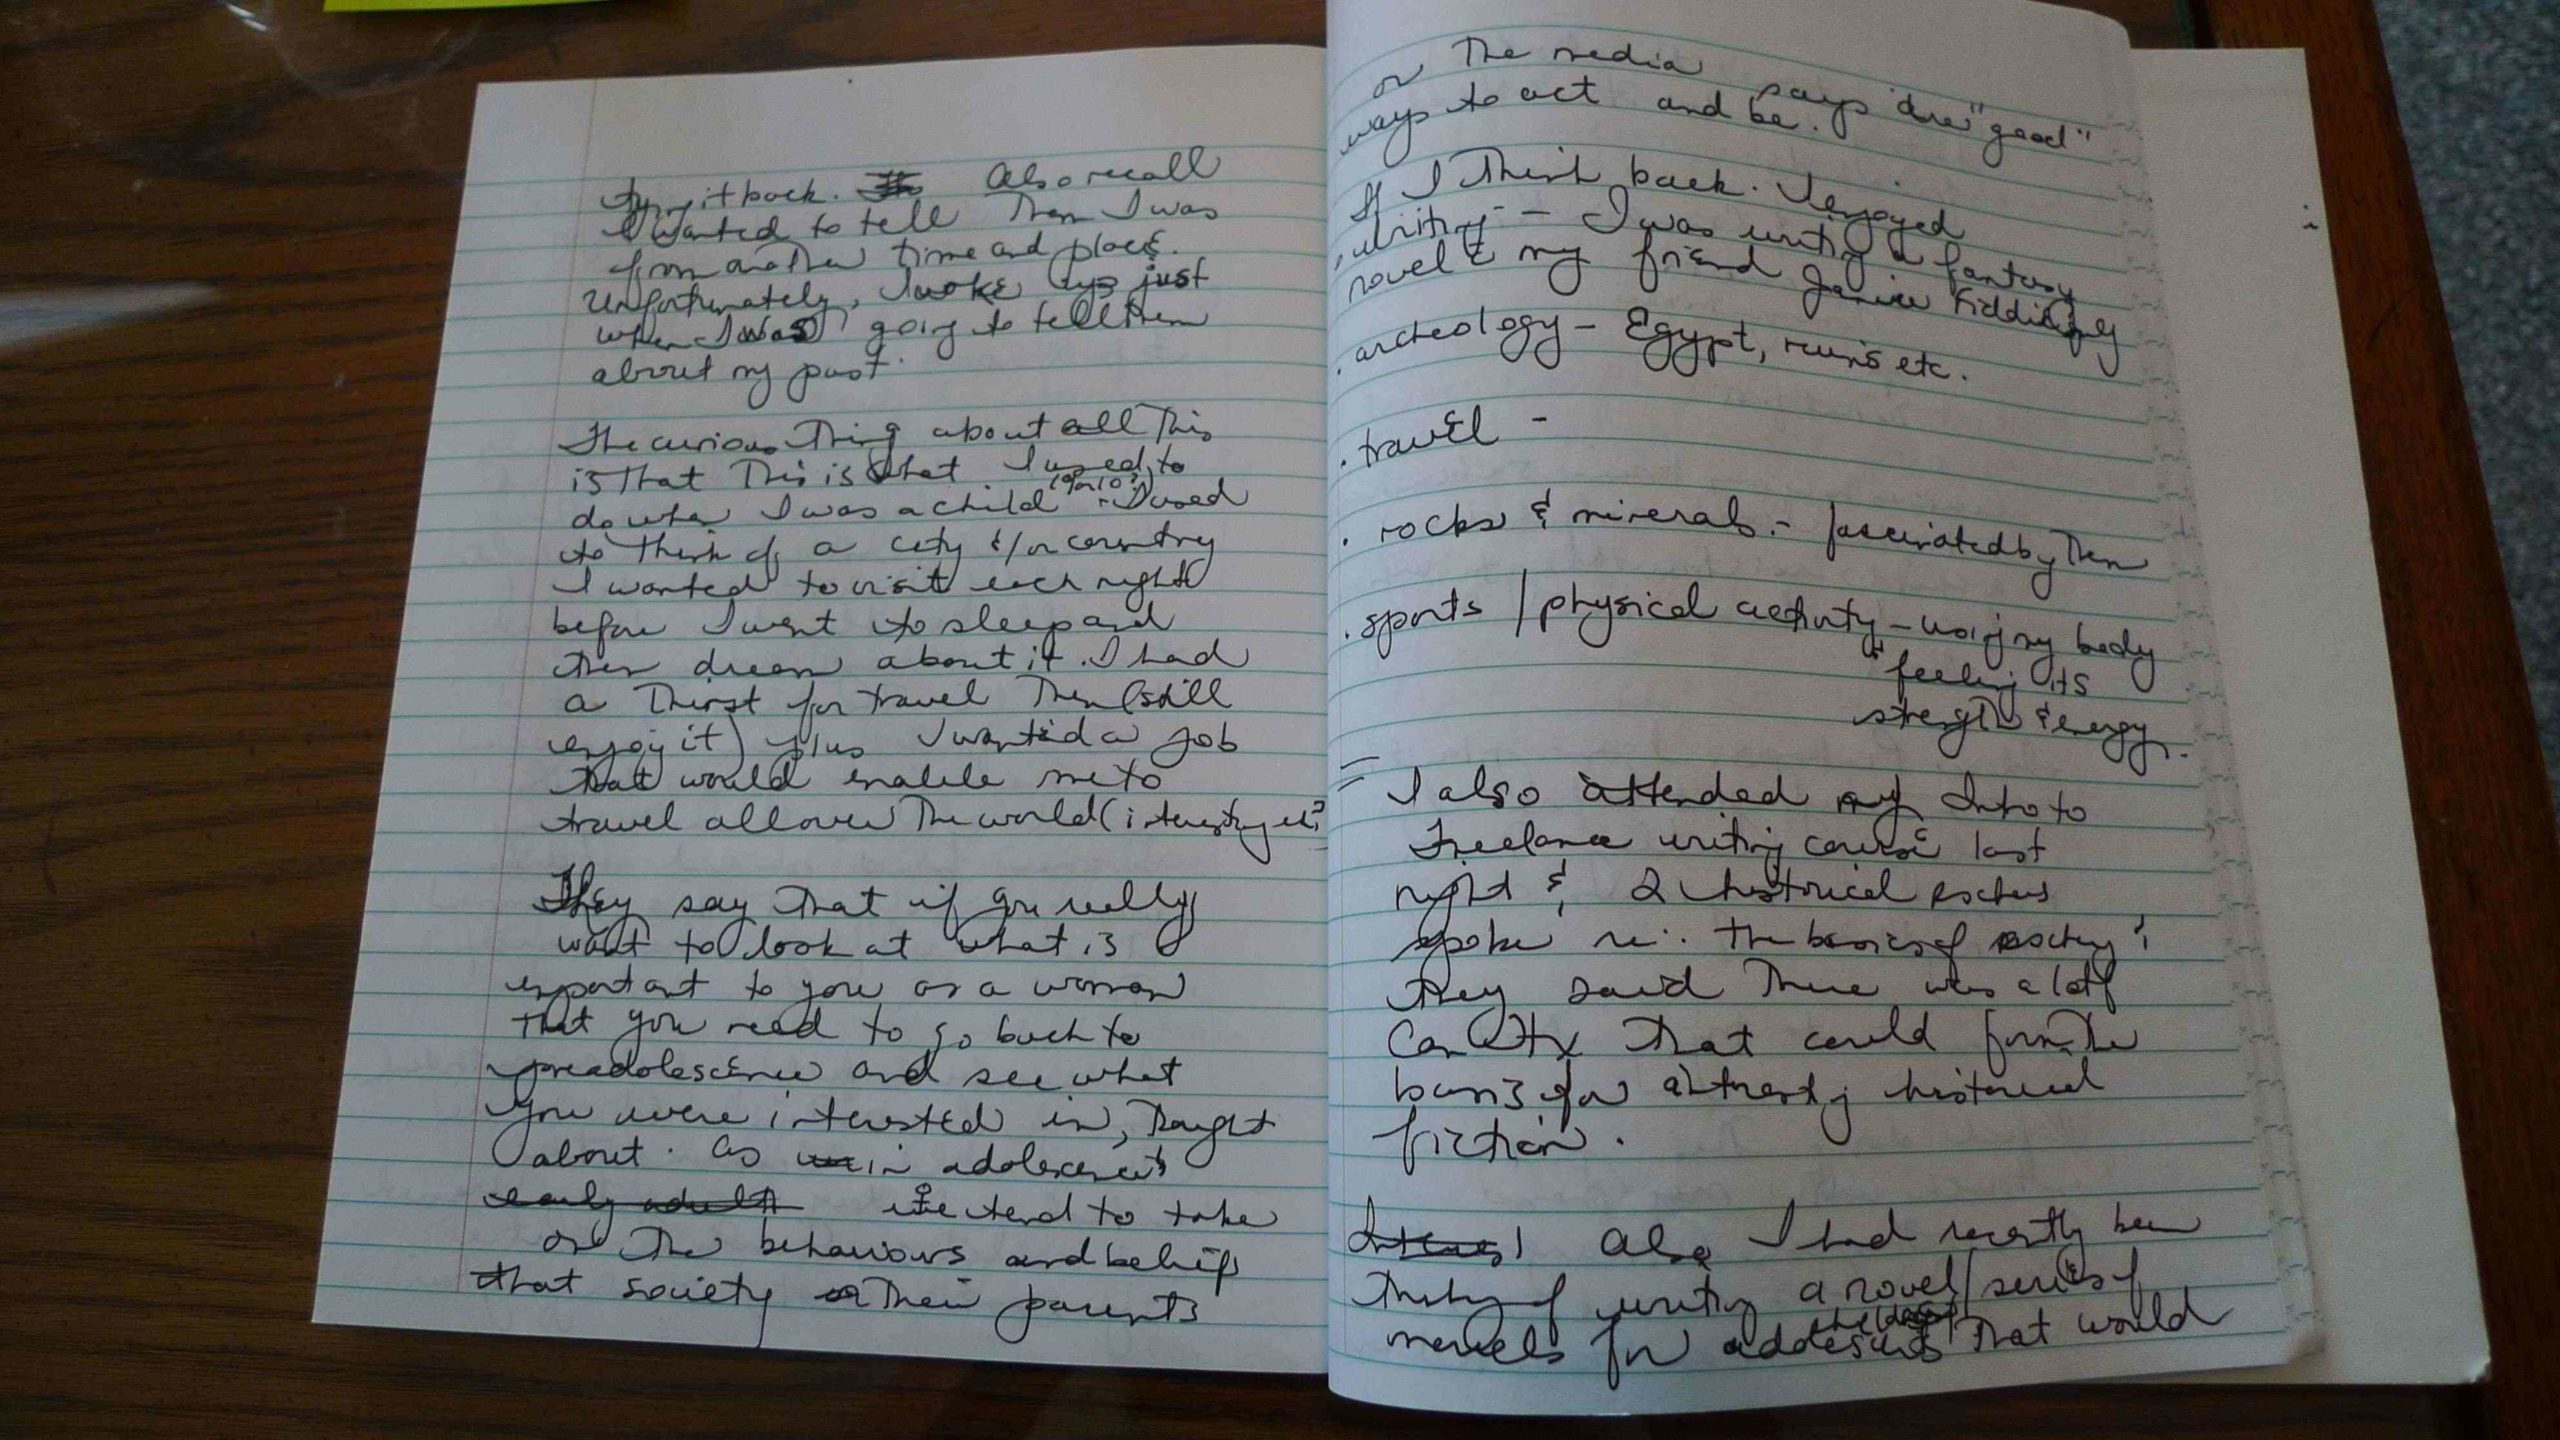 it back. Also recall
I wanted to tell them I was
from another time and place.
Unfortunately, I woke up just
when I was going to tell them
about my past.
The curious thing about all this
is that this is what I used to
do when I was a child (9 or 10?) - I used
to think of a city &/or country
I wanted to visit each night
before I went to sleep and
then dream about it. I had
a thirst for travel then (still
enjoy it) plus I wanted a job
that would enable me to
travel all over the world (interesting eh?
They say that if you really
want to look at what is
important to you as a woman
that you need to go back to
preadolescence and see what
you were interested in, thought
about. As in adolescence &
early adult we tend to take
on the behaviours and beliefs
that society or their parents
or the media says are "good"
ways to act and be.
If I think back. I enjoyed
. writing - I was writing a fantasy
novel & my friend Janice
. archeology - Egypt, ruins etc.
. travel -
. rocks & minerals - fascinated by them
. sports / physical activity - using my body
& feeling its
strength & energy.
I also attended my Intro to
Freelance writing course last
night & 2 historical
spoke re: the basics of
they said there was a lot of
Cdn that could form the
basis for historical
fiction.
Also I had recently been
thinking of writing a novel/series of
for adolescents that would